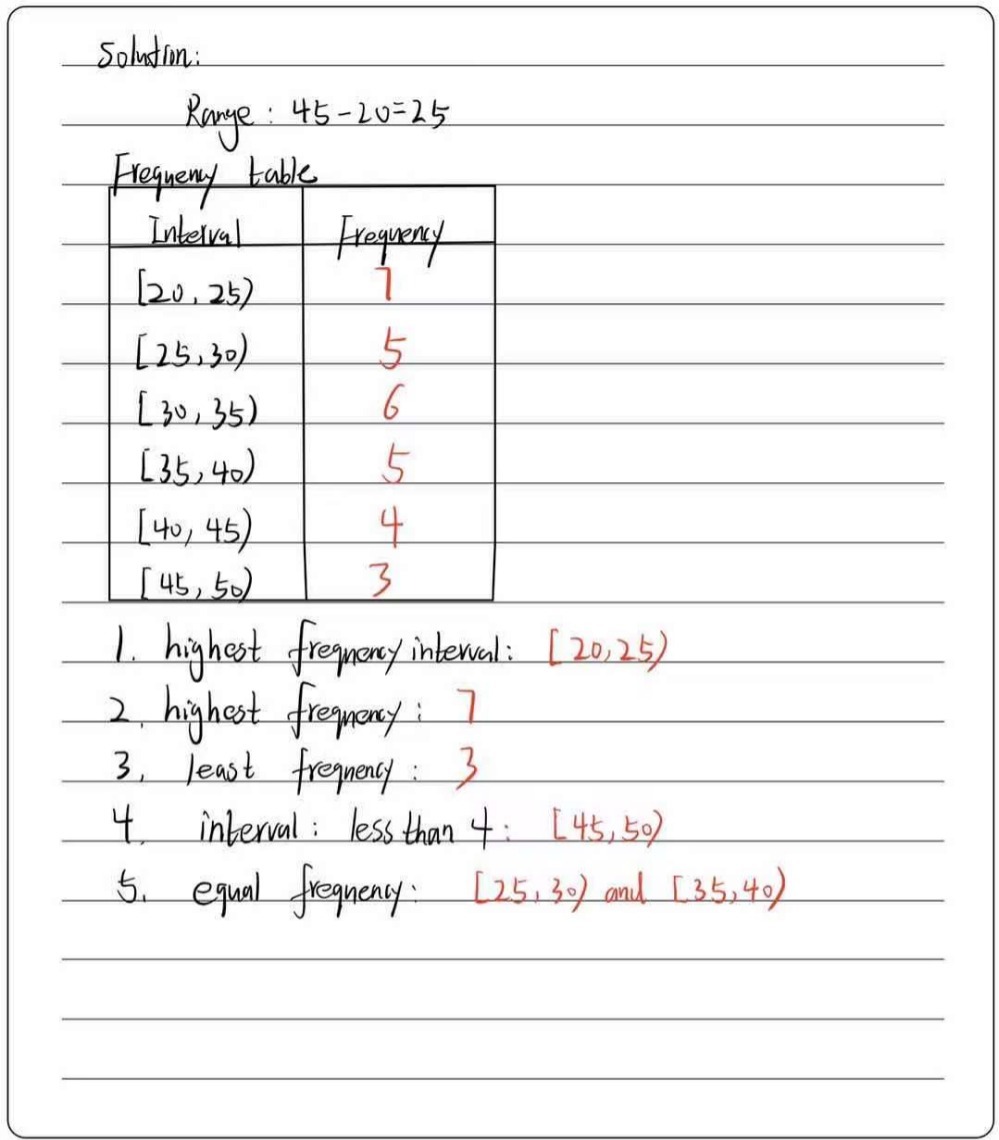 Solution:
Range: 45-20=25
Frequency table
Interval Frequency
[20, 25) 7
[25,30) 5
[30, 35) 6
[35,40) 5
[40, 45) 4
[45, 50) 3
1. highest frequency interval: [20,25)
2. highest frequency: 7
3. least frequency: 3
4. interval: less than 4: [45,50)
5. equal frequency: [25,30) and [35,40)